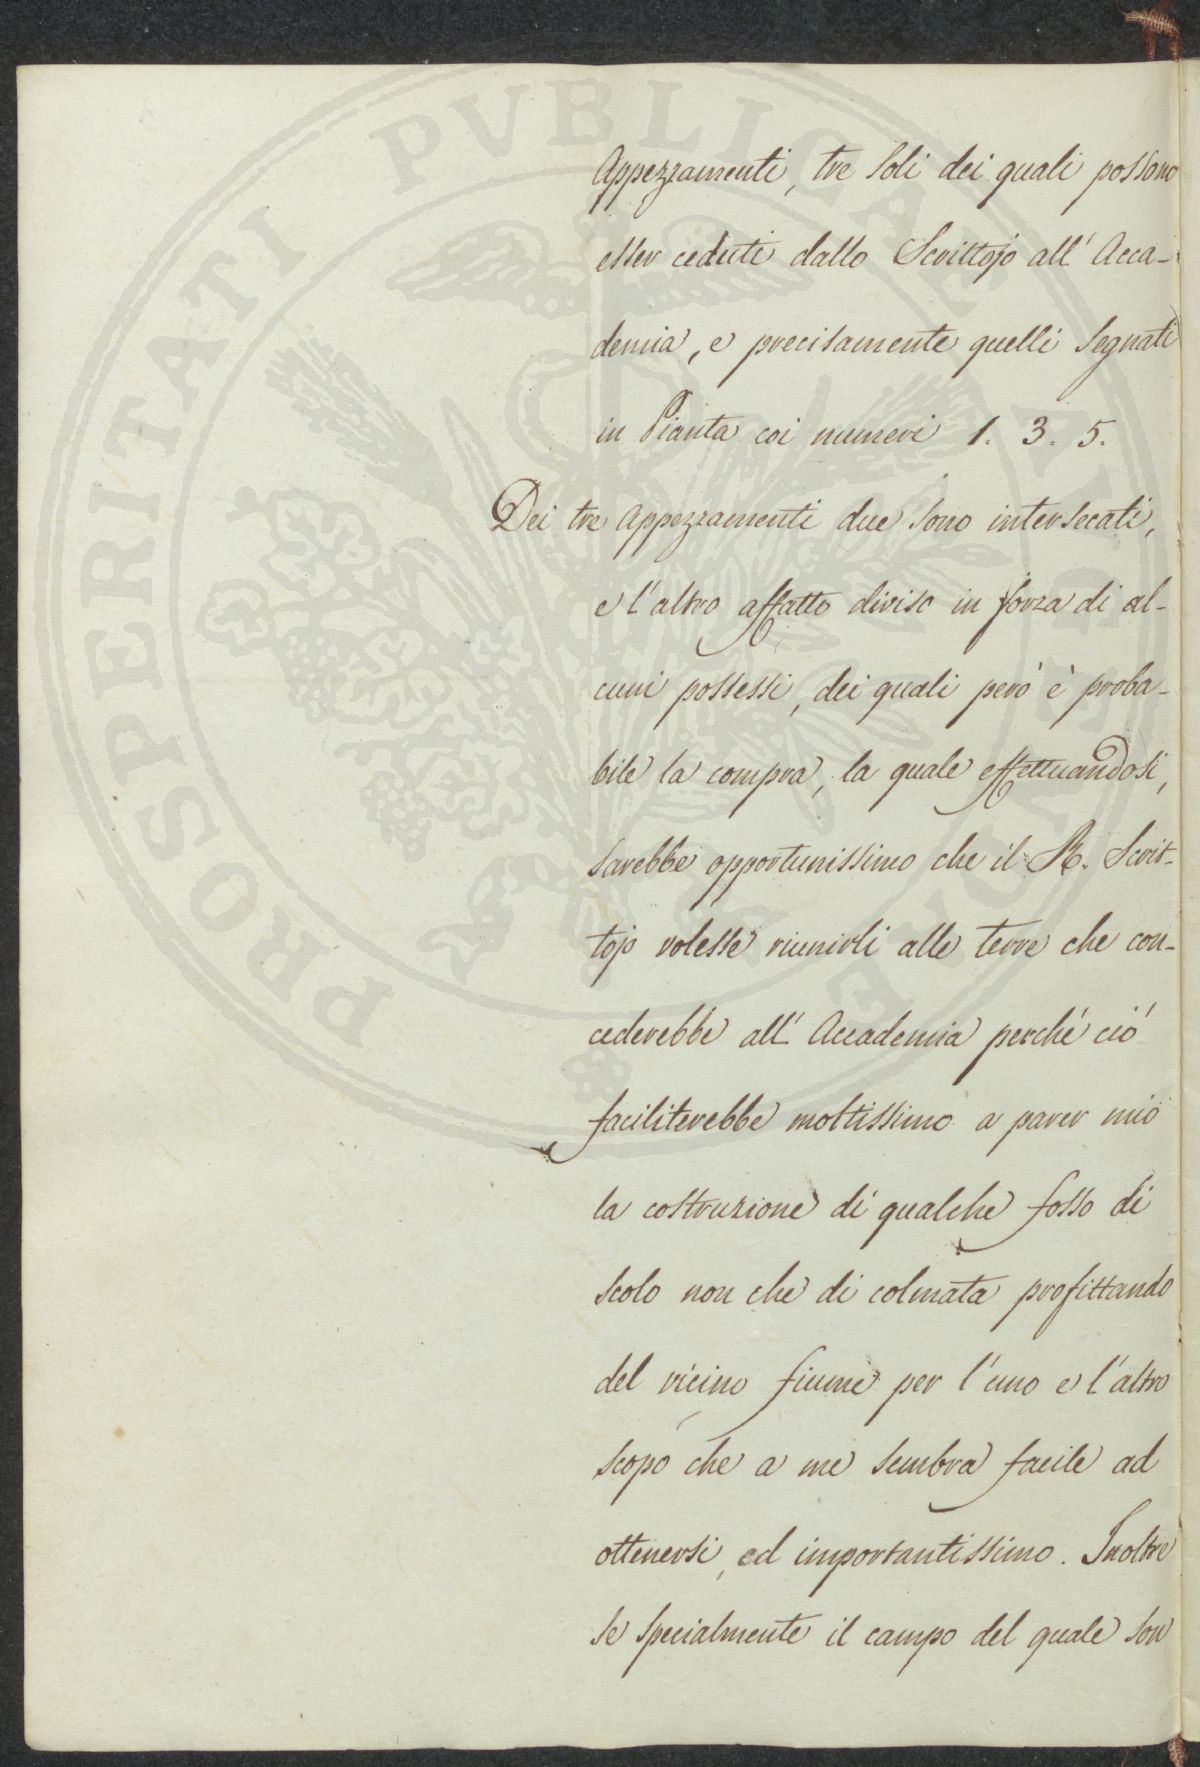 Appezzamenti, tre soli dei quali possono
esser ceduti dallo Scrittojo all' Acca-
demia, e precisamente quelli segnati
in Pianta coi numeri 1. 3. 5.
Dei tre appezzamenti due sono intersecati,
e l'altro affatto diviso in forza di al-
cuni possessi, dei quali però è proba-
bile la compra, la quale effettuandosi,
sarebbe opportunissimo che il R. Scrit-
tojo volesse riunirli alle terre che con-
cederebbe all' Accademia perchè ciò
faciliterebbe moltissimo a parer mio
la costruzione di qualche fosso di
scolo non che di colmata profittando
del vicino fiume per l'uno e l'altro
scopo che a me sembra facile ad
ottenersi, ed importantissimo. Inoltre
se specialmente il campo del quale son
PROSPERITATI PUBLICAE